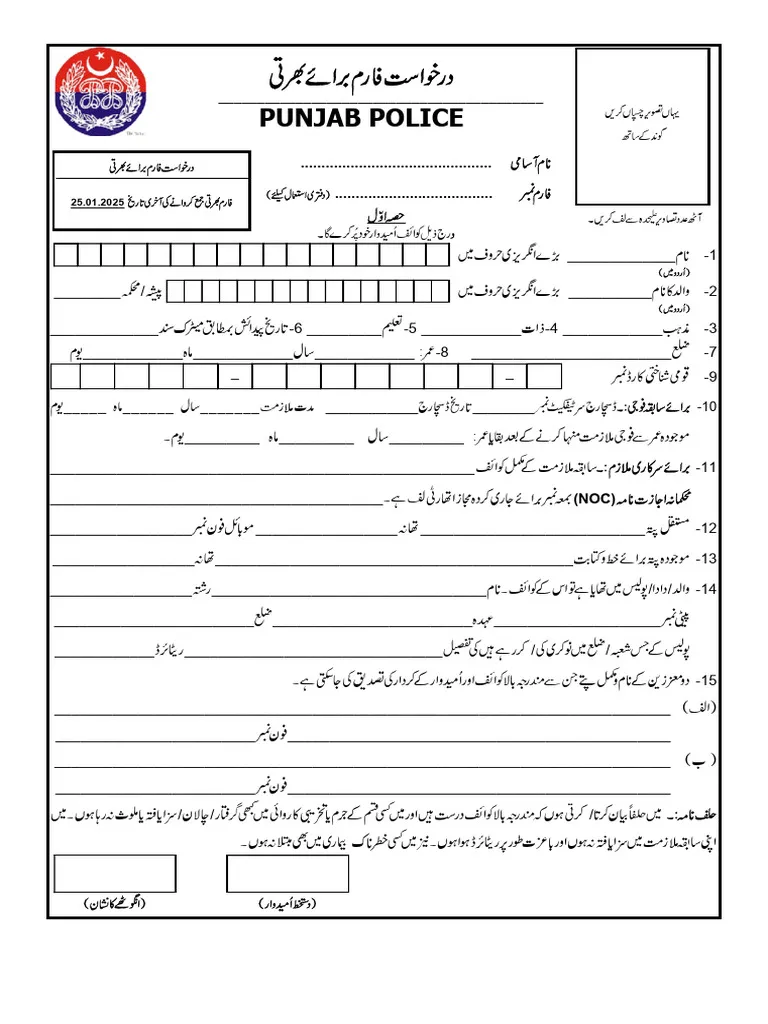 درخواست فارم برائے بھرتی
PUNJAB POLICE
یہاں تصویر چسپاں کریں
گوند کے ساتھ
درخواست فارم برائے بھرتی
فارم بھرتی جمع کروانے کی آخری تاریخ 25.01.2025
نام آسامی ............................................
فارم نمبر ..................................... (دفتری استعمال کیلئے)
آٹھ عدد تصاویر علیحدہ سے لف کریں۔
حصہ اوّل
درج ذیل کوائف اُمیدوار خود پُر کرے گا۔
1- نام ______________ بڑے انگریزی حروف میں
(اُردو میں)
2- والد کا نام ___________ بڑے انگریزی حروف میں پیشہ/محکمہ ___________
(اُردو میں)
3- مذہب ______________ 4- ذات ______________ 5- تعلیم ___________ 6- تاریخ پیدائش بمطابق میٹرک سند ______________
7- ضلع ______________ 8- عمر: ______________ سال ______________ ماہ ______________ یوم
9- قومی شناختی کارڈ نمبر – –
10- برائے سابقہ فوجی:۔ ڈسچارج سرٹیفکیٹ نمبر ________ تاریخ ڈسچارج ____________ مدت ملازمت _______ سال ______ ماہ _____ یوم
موجودہ عمر سے فوجی ملازمت منہا کرنے کے بعد بقایا عمر: __________ سال __________ ماہ __________ یوم۔
11- برائے سرکاری ملازم:۔ سابقہ ملازمت کے مکمل کوائف ____________________________
محکمانہ اجازت نامہ (NOC) بمعہ نمبر برائے جاری کردہ مجاز اتھارٹی لف ہے۔ ____________________________
12- مستقل پتہ ____________________________ تھانہ __________________ موبائل فون نمبر __________________
13- موجودہ پتہ برائے خط و کتابت ____________________________ تھانہ __________________
14- والد/دادا/پولیس میں تھا یا ہے تو اس کے کوائف۔ نام ____________________________ رشتہ __________________
پیٹی نمبر __________________ عہدہ __________________ ضلع __________________
پولیس کے جس شعبہ/ضلع میں نوکری کی/کر رہے ہیں کی تفصیل ____________________________ ریٹائرڈ __________________
15- دو معززین کے نام و مکمل پتے جن سے مندرجہ بالا کوائف اور اُمیدوار کے کردار کی تصدیق کی جا سکتی ہے۔
(الف) ____________________________
____________________________ فون نمبر __________________
(ب) ____________________________
____________________________ فون نمبر __________________
حلف نامہ:۔ میں حلفاً بیان کرتا/کرتی ہوں کہ مندرجہ بالا کوائف درست ہیں اور میں کسی قسم کے جرم یا تخریبی کاروائی میں کبھی گرفتار/چالان/سزا یافتہ یا ملوث نہ رہا ہوں۔ میں
اپنی سابقہ ملازمت میں سزا یافتہ نہ ہوں اور باعزت طور پر ریٹائرڈ ہوا ہوں۔ نیز میں کسی خطرناک بیماری میں بھی مبتلا نہ ہوں۔
(دستخط اُمیدوار) (انگوٹھے کا نشان)